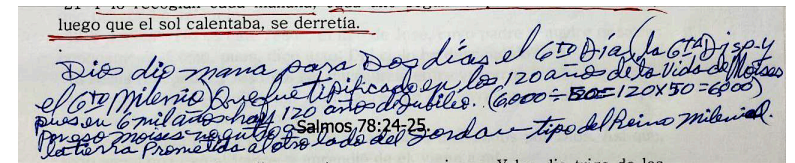 luego que el sol calentaba, se derretía.
Dios dio mana para Dos días el 6to Día, (la 6ta Disp. y
el 6to Milenio) Que fue tipificado en los 120 años de la Vida de Moises
pues en 6 mil años hay 120 años de Jubileo. (6000 ÷ 50 = 120 X 50 = 6000)
Por eso moises no entro a
Salmos 78:24-25.
la tierra Prometida al otro lado del Jordan - tipo del Reino milenial.